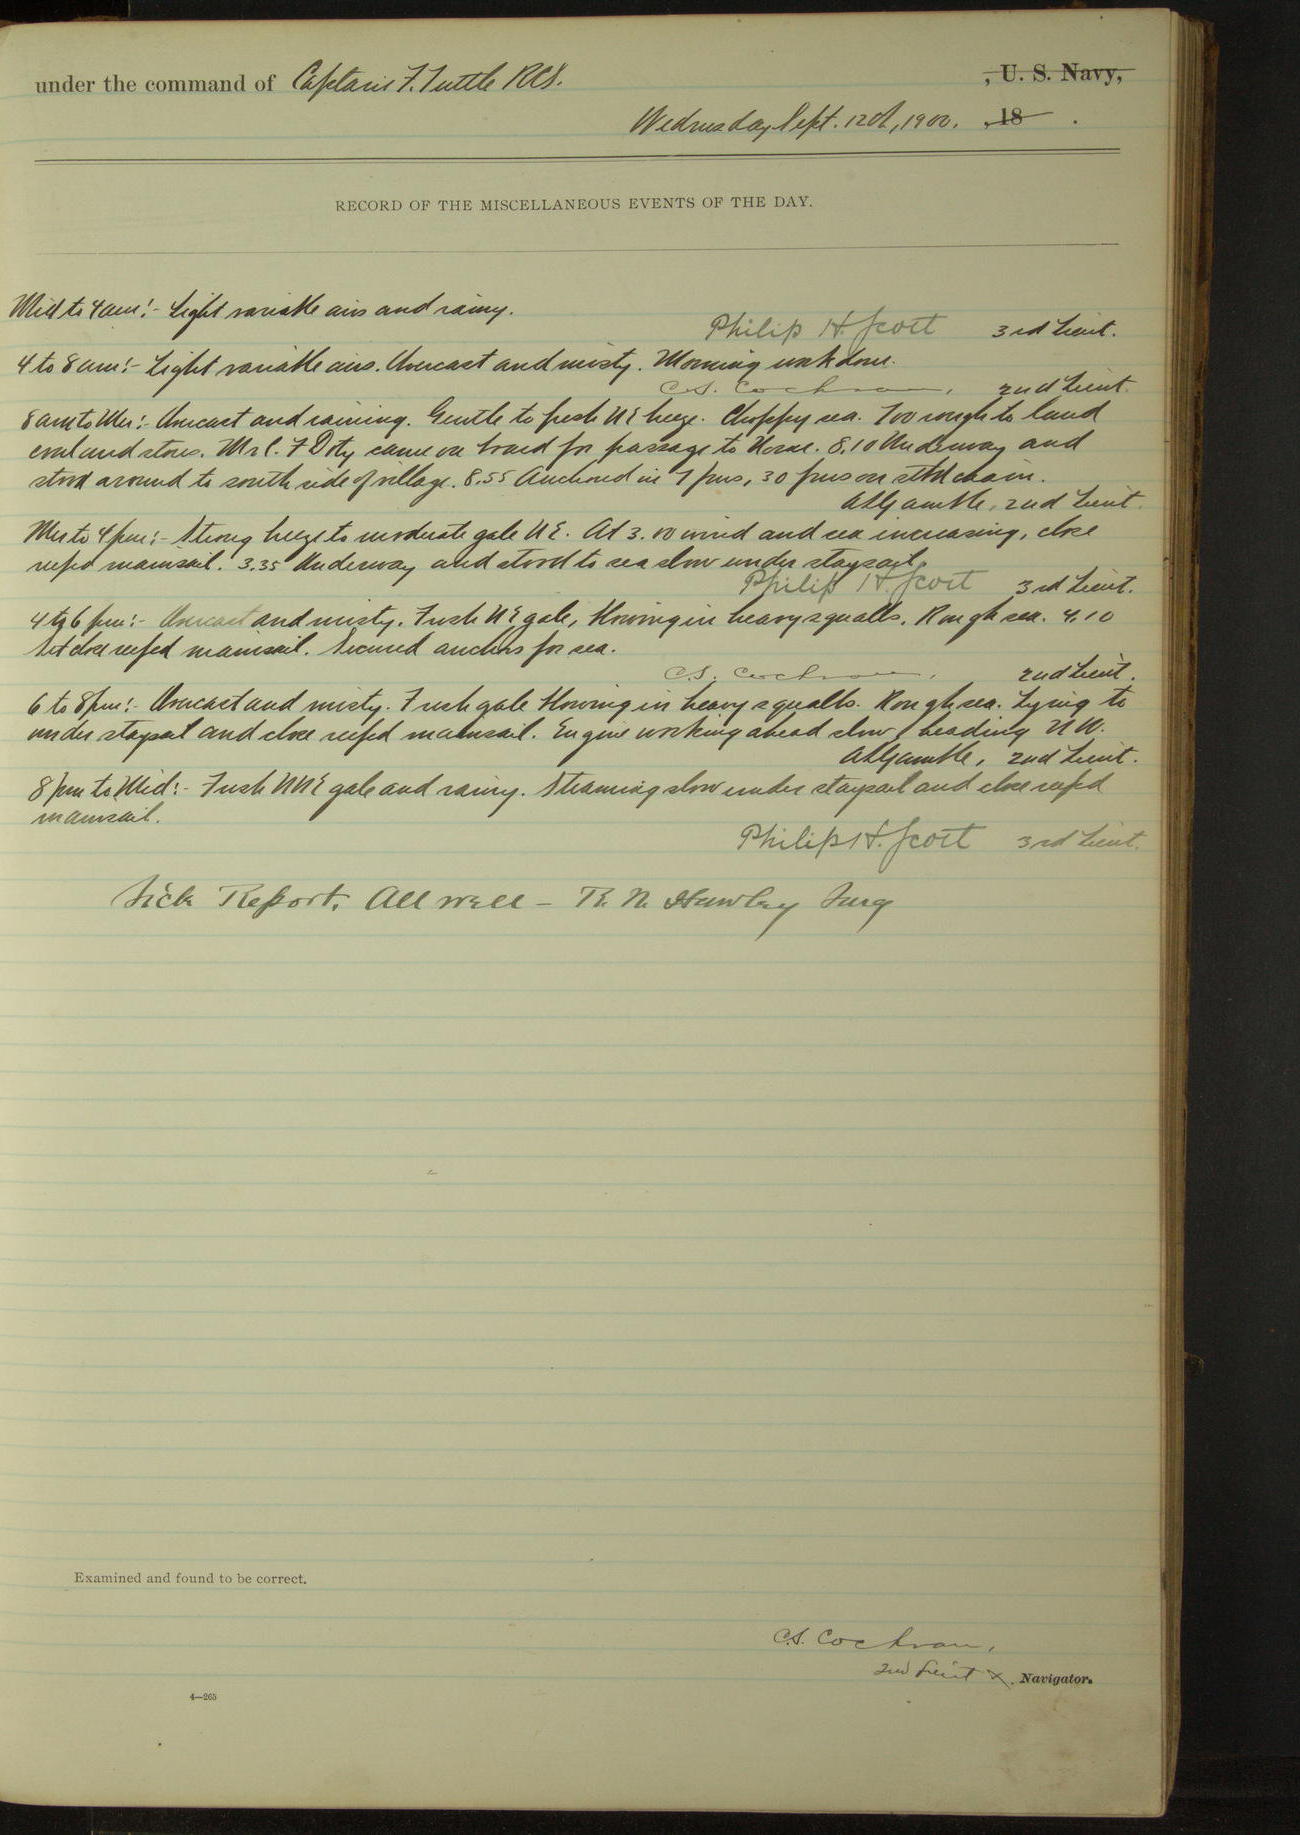 under the command of Captain F. Tuttle RCS. , U. S. Navy,
Wednesday Sept. 12th, 1900. , 18 .
RECORD OF THE MISCELLANEOUS EVENTS OF THE DAY.
Mid to 4 am:- Light variable airs and rainy.
Philip H. Scott 3rd Lieut.
4 to 8 am:- Light variable airs. Overcast and misty. Morning work done.
C.S. Cochran, 2nd Lieut.
8 am to Mer:- Overcast and raining. Gentle to fresh NE breeze. Choppy sea. Too rough to land
coal and stores. Mr C. F Doty came on board for passage to Nome. 8.10 Underway and
stood around to south side of village. 8.55 Anchored in 7 fms, 30 fms on stbd chain.
A H Gamble, 2nd Lieut.
Mer to 4 pm:- Strong breeze to moderate gale NE. At 3.00 wind and sea increasing, close
reefed mainsail. 3.35 Underway and stood to sea slow under staysail.
Philip H. Scott 3rd Lieut.
4 to 6 pm:- Overcast and misty. Fresh NE gale, blowing in heavy squalls. Rough sea. 4.10
Set close reefed mainsail. Secured anchors for sea.
C.S. Cochran, 2nd Lieut.
6 to 8 pm:- Overcast and misty. Fresh gale blowing in heavy squalls. Rough sea. Lying to
under staysail and close reefed mainsail. Engine working ahead slow, heading NW.
Gamble, 2nd Lieut.
8 pm to Mid:- Fresh NNE gale and rainy. Steaming slow under staysail and close reefed
mainsail.
Philip H. Scott 3rd Lieut.
Sick Report, All well – R. N. Hawley Surg
Examined and found to be correct.
C.S. Cochran,
2nd Lieut &. Navigator.
4—265